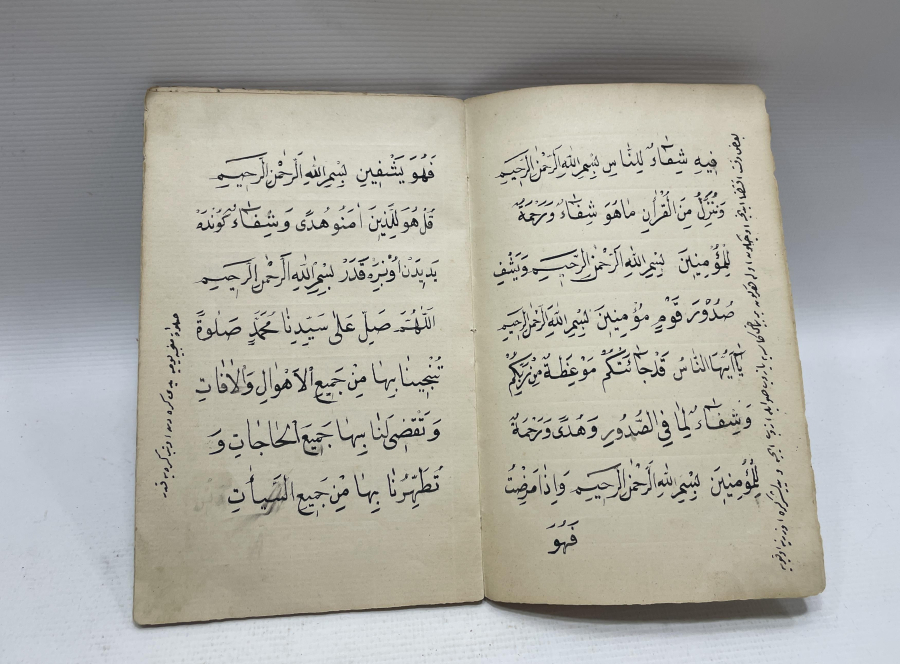 فِيهِ شِفَٓاءٌ لِلنَّاسِ بِسْمِ اللهِ الرَّحْمٰنِ الرَّحِيمِ
وَنُنَزِّلُ مِنَ الْقُرْاٰنِ مَا هُوَ شِفَٓاءٌ وَرَحْمَةٌ
لِلْمُؤْمِنِينَ بِسْمِ اللهِ الرَّحْمٰنِ الرَّحِيمِ وَيَشْفِ
صُدُورَ قَوْمٍ مُؤْمِنِينَ بِسْمِ اللهِ الرَّحْمٰنِ الرَّحِيمِ
يَٓا اَيُّهَا النَّاسُ قَدْ جَٓائَتْكُمْ مَوْعِظَةٌ مِنْ رَبِّكُمْ
وَشِفَٓاءٌ لِمَا فِي الصُّدُورِ وَهُدًى وَرَحْمَةٌ
لِلْمُؤْمِنِينَ بِسْمِ اللهِ الرَّحْمٰنِ الرَّحِيمِ وَاِذَا مَرِضْتُ
فَهُوَ
فَهُوَ يَشْفِينِ بِسْمِ اللهِ الرَّحْمٰنِ الرَّحِيمِ
قُلْ هُوَ لِلَّذِينَ اٰمَنُو هُدًى وَشِفَٓاءٌ كونده
يديدن اونيره قدر بِسْمِ اللهِ الرَّحْمٰنِ الرَّحِيمِ
اَللّٰهُمَّ صَلِّ عَلٰى سَيِّدِنَا مُحَمَّدٍ صَلٰوةً
تُنْجِينَا بِهَا مِنْ جَمِيعِ الْاَهْوَالِ وَالْاٰفَاتِ
وَتَقْضِى لَنَا بِهَا جَمِيعَ الْحَاجَاتِ وَ
تُطَهِّرُنَا بِهَا مِنْ جَمِيعِ السَّيِّاٰتِ